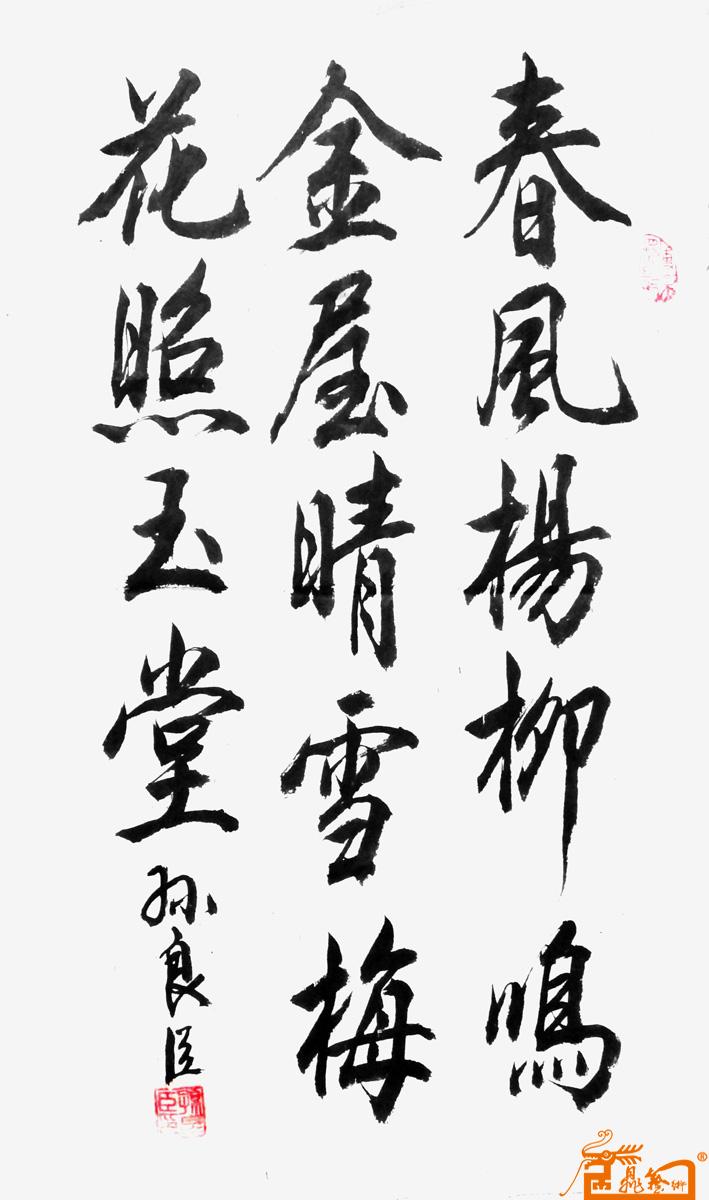 春風楊柳鳴
金屋晴雪梅
花照玉堂孙良臣